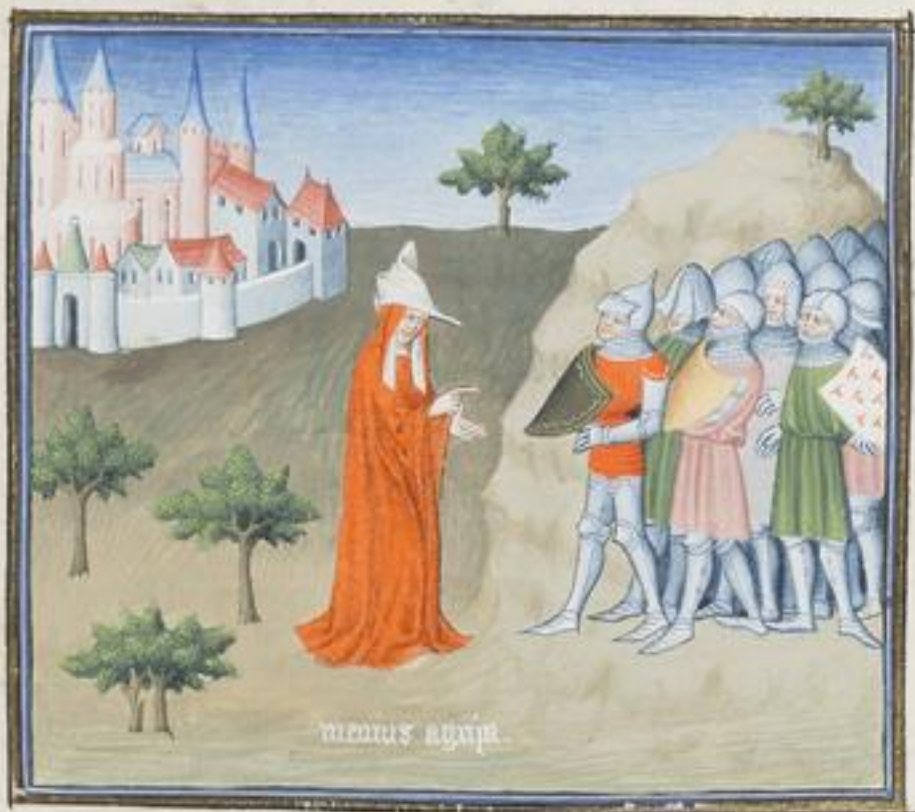 menius agripa